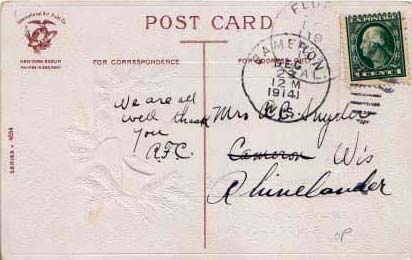 International Art Publ. Co.
NEW YORK BERLIN
PRINTED IN GERMANY
POST CARD
FOR CORRESPONDENCE
FOR ADDRESS ONLY
SERIES No
CAMERON,
DEC
24
12 M
1914
WIS.
1 CENT 1
We are all
well thank
you
A.F.C.
Mrs A.C. Snyder
Cameron Wis
Rhinelander